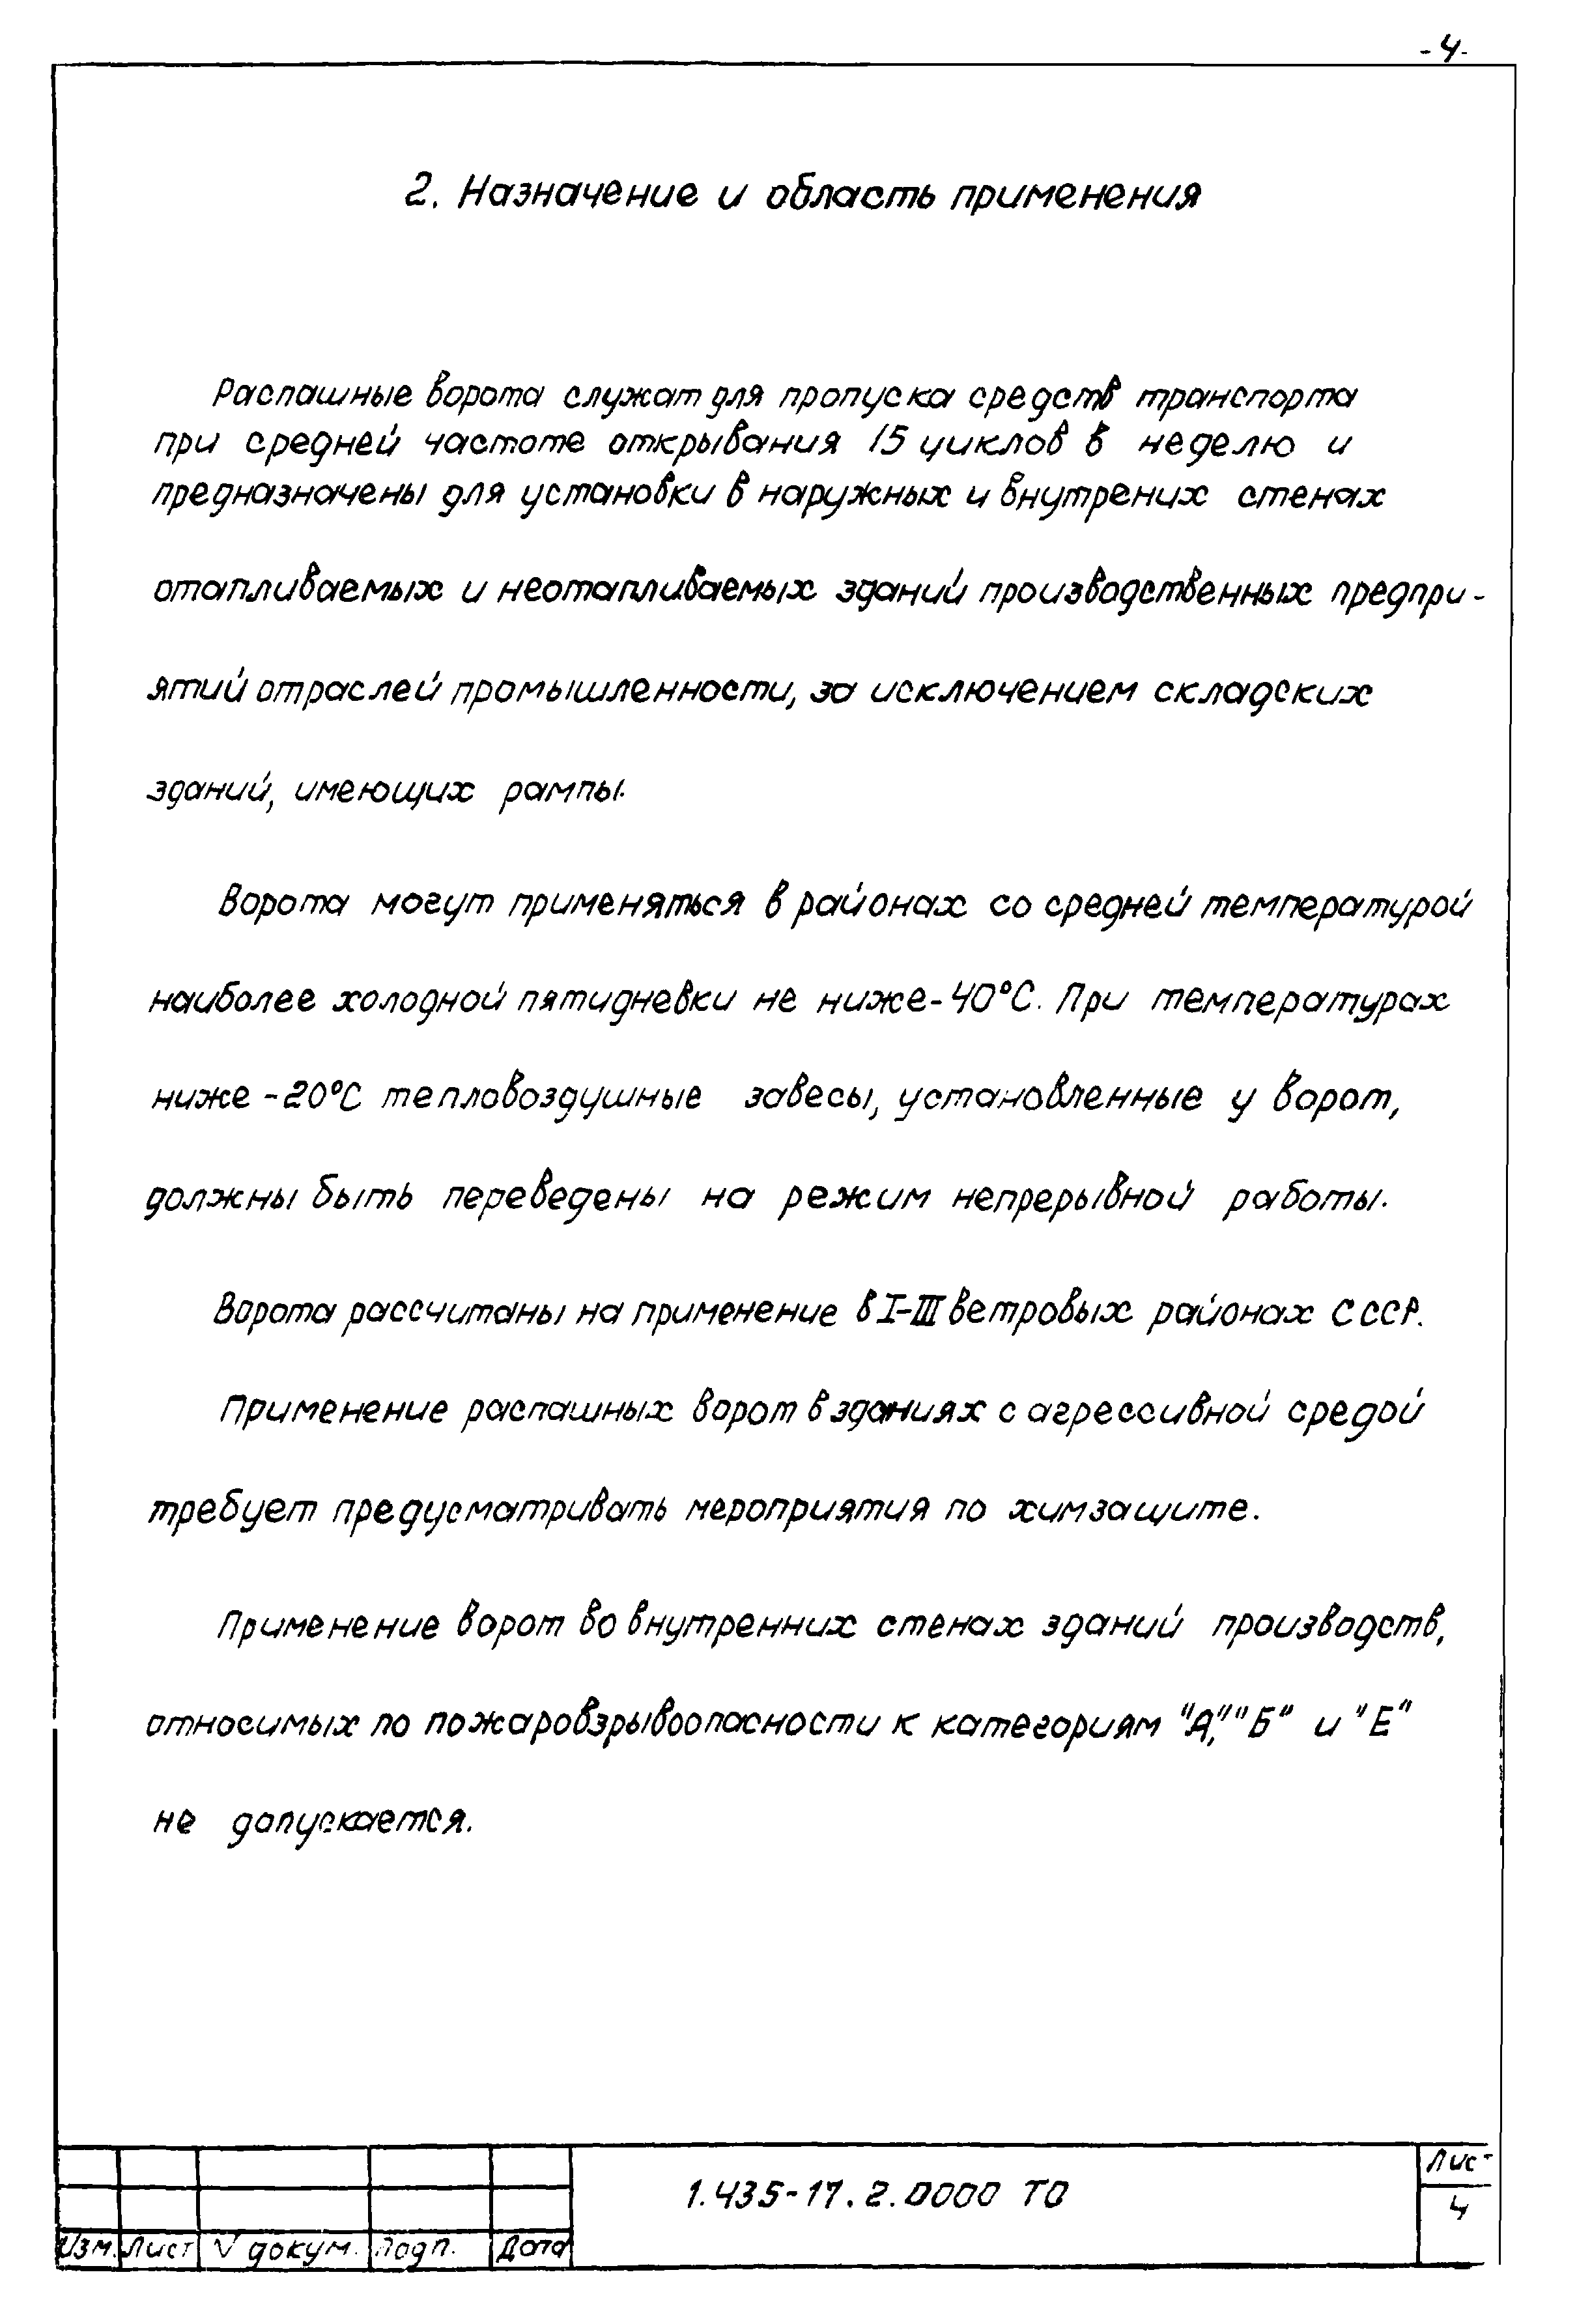 -4-
2. Назначение и область применения
Распашные ворота служат для пропуска средств транспорта
при средней частоте открывания 15 циклов в неделю и
предназначены для установки в наружных и внутрених стенах
отапливаемых и неотапливаемых зданий производственных предпри-
ятий отраслей промышленности, за исключением складских
зданий, имеющих рампы.
Ворота могут применяться в районах со средней температурой
наиболее холодной пятидневки не ниже -40°С. При температурах
ниже -20°С тепловоздушные завесы, установленные у ворот,
должны быть переведены на режим непрерывной работы.
Ворота рассчитаны на применение в I-III ветровых районах СССР.
Применение распашных ворот в зданиях с агрессивной средой
требует предусматривать мероприятия по химзащите.
Применение ворот во внутренних стенах зданий производств,
относимых по пожаровзрывоопасности к категориям "А," "Б" и "Е"
не допускается.
1.435-17.2.0000 ТО
Лист
4
Изм. Лист № докум. Подп. Дата